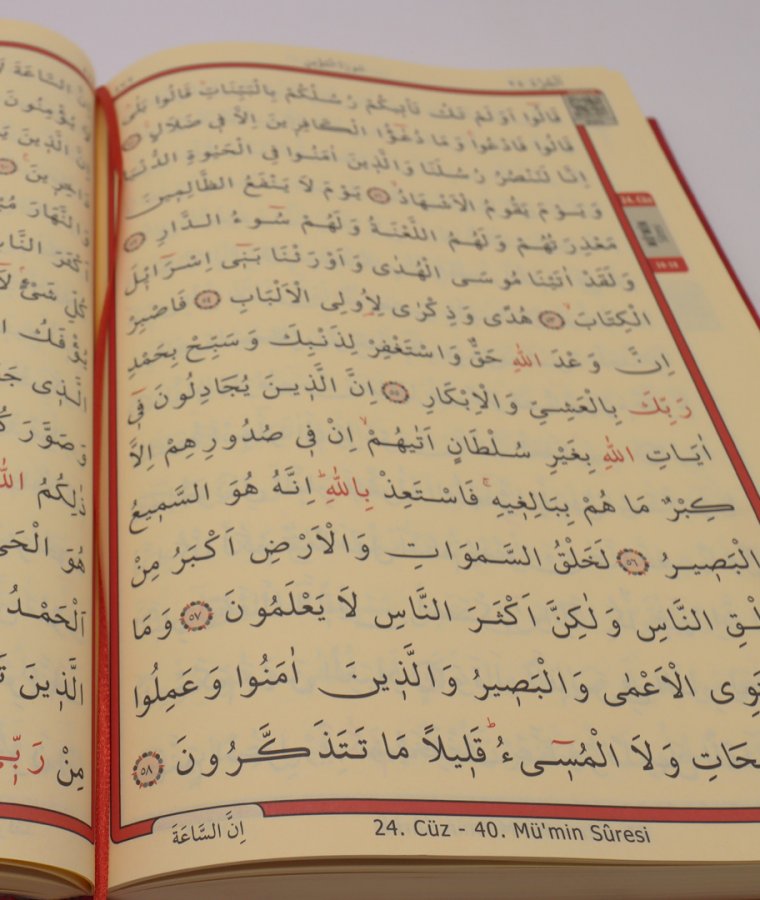 قَالُٓوا اَوَلَمْ تَكُ تَأْتٖيكُمْ رُسُلُكُمْ بِالْبَيِّنَاتِ قَالُوا بَلٰى
قَالُوا فَادْعُوا وَمَا دُعٰٓؤُا الْكَافِرٖينَ اِلَّا فٖى ضَلَالٍ
اِنَّا لَنَنْصُرُ رُسُلَنَا وَالَّذٖينَ اٰمَنُوا فِى الْحَيٰوةِ الدُّنْيَا
وَيَوْمَ يَقُومُ الْاَشْهَادُ ﴿٥١﴾ يَوْمَ لَا يَنْفَعُ الظَّالِمٖينَ
مَعْذِرَتُهُمْ وَلَهُمُ اللَّعْنَةُ وَلَهُمْ سُٓوءُ الدَّارِ ﴿٥٢﴾
وَلَقَدْ اٰتَيْنَا مُوسَى الْهُدٰى وَاَوْرَثْنَا بَنٖٓى اِسْرَٓائٖلَ
الْكِتَابَ ﴿٥٣﴾ هُدًى وَذِكْرٰى لِاُولِى الْاَلْبَابِ ﴿٥٤﴾ فَاصْبِرْ
اِنَّ وَعْدَ اللّٰهِ حَقٌّ وَاسْتَغْفِرْ لِذَنْبِكَ وَسَبِّحْ بِحَمْدِ
رَبِّكَ بِالْعَشِىِّ وَالْاِبْكَارِ ﴿٥٥﴾ اِنَّ الَّذٖينَ يُجَادِلُونَ فٖٓى
اٰيَاتِ اللّٰهِ بِغَيْرِ سُلْطَانٍ اَتٰيهُمْ اِنْ فٖى صُدُورِهِمْ اِلَّا
كِبْرٌ مَا هُمْ بِبَالِغٖيهِ فَاسْتَعِذْ بِاللّٰهِ اِنَّهُ هُوَ السَّمٖيعُ
الْبَصٖيرُ ﴿٥٦﴾ لَخَلْقُ السَّمٰوَاتِ وَالْاَرْضِ اَكْبَرُ مِنْ
لْقِ النَّاسِ وَلٰكِنَّ اَكْثَرَ النَّاسِ لَا يَعْلَمُونَ ﴿٥٧﴾ وَمَا
تَوِى الْاَعْمٰى وَالْبَصٖيرُ وَالَّذٖينَ اٰمَنُوا وَعَمِلُوا
حَاتِ وَلَا الْمُسٖٓىءُ قَلٖيلاً مَا تَتَذَكَّرُونَ ﴿٥٨﴾
اِنَّ السَّاعَةَ
24. Cüz - 40. Mü'min Sûresi
24. Cüz
اِنَّ السَّاعَةَ
لَا يُؤْمِنُونَ
اِنَّ الَّذٖينَ
دَاخِرٖينَ
وَالنَّهَارَ
اَكْثَرَ
كُلِّ شَىْءٍ
يُؤْفَكُ
الَّذٖى
وَصَوَّرَ
ذٰلِكُمُ
هُوَ
اَلْحَمْدُ
الَّذٖينَ
مِنْ